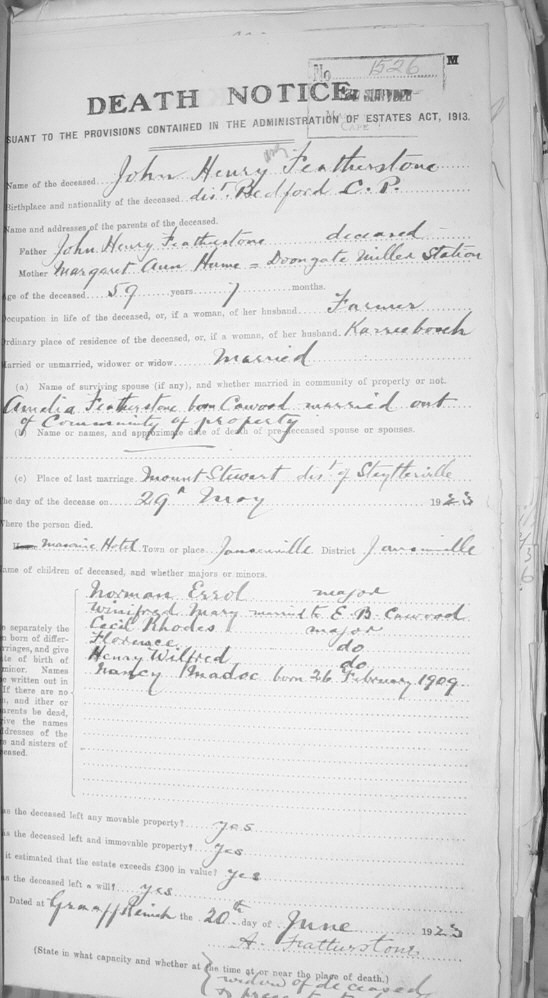 M
No 1526
DEATH NOTICE
CAPE
SUANT TO THE PROVISIONS CONTAINED IN THE ADMINISTRATION OF ESTATES ACT, 1913.
Name of the deceased John Henry Featherstone
Birthplace and nationality of the deceased dist. Bedford C. P.
Name and addresses of the parents of the deceased.
Father John Henry Featherstone deceased
Mother Margaret Ann Hume = Doongate Miller Station
Age of the deceased 59 years 7 months.
Occupation in life of the deceased, or, if a woman, of her husband. Farmer
Ordinary place of residence of the deceased, or, if a woman, of her husband. Karreebosch
Married or unmarried, widower or widow Married
(a) Name of surviving spouse (if any), and whether married in community of property or not.
Amelia Featherstone born Cawood married out
of Community of property
(b) Name or names, and approximate date of death of pre-deceased spouse or spouses.
(c) Place of last marriage. Mount Stewart dist of Steytlerville
The day of the decease on 29th May 1923
Where the person died.
Masonic Hotel Town or place Jansenville District Jansenville
Name of children of deceased, and whether majors or minors.
Norman Errol major
Winifred Mary married to E B Cawood
Cecil Rhodes major
Florence do
Henry Wilfred do
Nancy Madoc born 26 February 1909
e separately the
n born of differ-
rriages, and give
te of birth of
minor. Names
e written out in
If there are no
n, and ither or
arents be dead,
ive the names
ddresses of the
e and sisters of
ceased.
as the deceased left any movable property? yes
as the deceased left and immovable property? yes
it estimated that the estate exceeds £300 in value? yes
as the deceased left a will? yes
Dated at Graaff Reinet the 20th day of June 1923
A. Featherstone
(State in what capacity and whether at the time at or near the place of death.)
widow of deceased